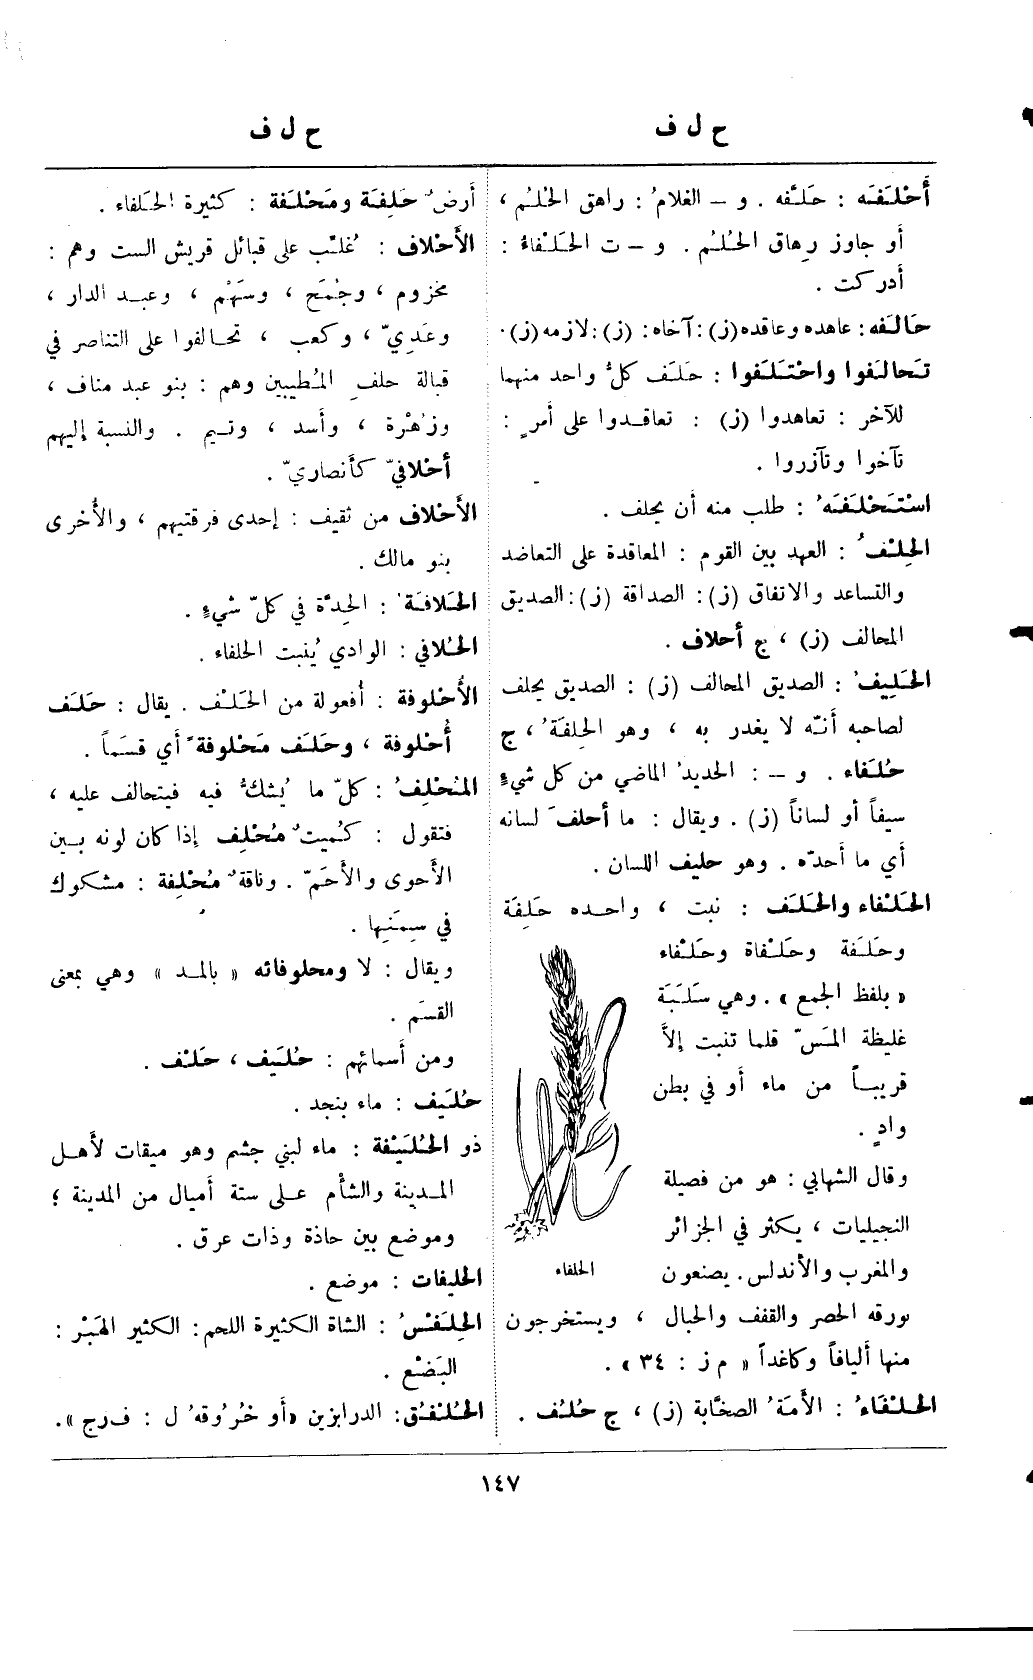 ح ل ف
ح ل ف
أَحْلَفَه : حَلَّفه . و – الغلامُ : راهق الحُلُم ،
أو جاوز رِهاق الحُلُم . و – ت الحَلْفاءُ :
أدركت .
حَالَفَه : عاهده وعاقده (ز) : آخاه : (ز) : لازمه (ز) .
تَحالَفُوا واحْتَلَفُوا : حَلَف كلُّ واحد منهما
للآخر : تعاهدوا (ز) : تعاقدوا على أمرٍ :
تآخوا وتآزروا .
اسْتَحْلَفَهُ : طلب منه أن يحلف .
الحِلْفُ : العهد بين القوم : المعاقدة على التعاضد
والتساعد والاتفاق (ز) : الصداقة (ز) : الصديق
المحالف (ز) ، ج أحلاف .
الحَلِيفُ : الصديق المحالف (ز) : الصديق يحلف
لصاحبه أنّه لا يغدر به ، وهو الحِلفةُ ، ج
حُلَفاء . و – : الحديدُ الماضي من كل شيءٍ
سيفاً أو لساناً (ز) . ويقال : ما أحلفَ لسانه
أي ما أحدّه . وهو حليف اللسان .
الحَلْفاء والحَلَف : نبت ، واحده حَلِفَة
وحَلَفة وحَلْفاة وحَلْفاء
« بلفظ الجمع » . وهي سَلَبَة
غليظة المَسّ قلما تنبت إلاَّ
قريباً من ماء أو في بطن
وادٍ .
وقال الشهابي : هو من فصيلة
النجيليات ، يكثر في الجزائر
والمغرب والأندلس . يصنعون
الحلفاء
بورقه الحصر والقفف والحبال ، ويستخرجون
منها أليافاً وكاغداً « م ز : ٣٤ » .
الحَلْفَاءُ : الأمَةُ الصخّابة (ز) ، ج حُلُف .
أرضٌ حَلِفَة ومَحْلَفَة : كثيرة الحَلفاء .
الأَحْلاف : غُلّب على قبائل قريش الست وهم :
مخزوم ، وجُمَح ، وسَهْم ، وعبد الدار ،
وعَدِيّ ، وكعب ، تحالفوا على التناصر في
قبالة حلفِ المُطيبين وهم : بنو عبد مناف ،
وزُهْرة ، وأسد ، وتيم . والنسبة إليهم
أحْلافيّ كأنصاريّ .
الأَحْلاف من ثقيف : إحدى فرقتيهم ، والأُخرى
بنو مالك .
الحَلافَةُ : الحِدَّة في كلّ شيءٍ .
الحُلافي : الوادي يُنبت الحلفاء .
الأُحْلوفة : أُفعولة من الحَلْف . يقال : حَلَف
أُحْلوفة ، وحَلَف مَحْلوفةً أي قسَماً .
المُحْلِفُ : كلّ ما يُشكُّ فيه فيتحالف عليه ،
فتقول : كُميتٌ مُحْلِف إذا كان لونه بين
الأحوى والأحَمّ . وناقةٌ مُحْلِفة : مشكوك
في سِمَنِها .
ويقال : لا ومحلوفائه « بالمد » وهي بمعنى
القسَم .
ومن أسمائهم : حُلَيف ، حَلْف .
حُلَيف : ماء بنجد .
ذو الحُلَيْفة : ماء لبني جشم وهو ميقات لأهل
المدينة والشأم على ستة أميال من المدينة ؛
وموضع بين حاذة وذات عرق .
الحليفات : موضع .
الحِلَفْسُ : الشاة الكثيرة اللحم : الكثير الهَبْر :
البَضْع .
الحُلْفُق : الدرابزين «أو خُرُوقه ل : فرج» .
١٤٧